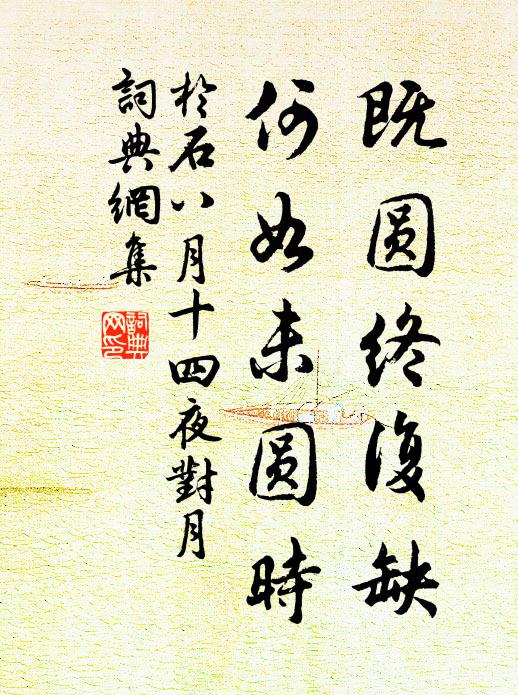 既圆终復缺
何如未圆時
於石八月十四夜對月
詞典網集
詞典網印